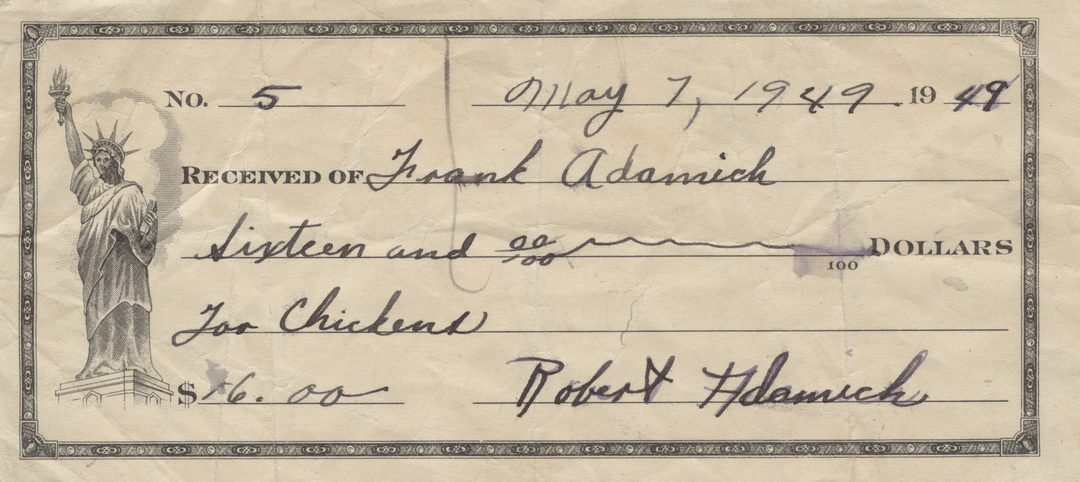 No. 5 May 7, 1949 . 19 49
RECEIVED OF Frank Adamich
Sixteen and 00/100 100 DOLLARS
For Chickens
$ 16.00 Robert Adamich